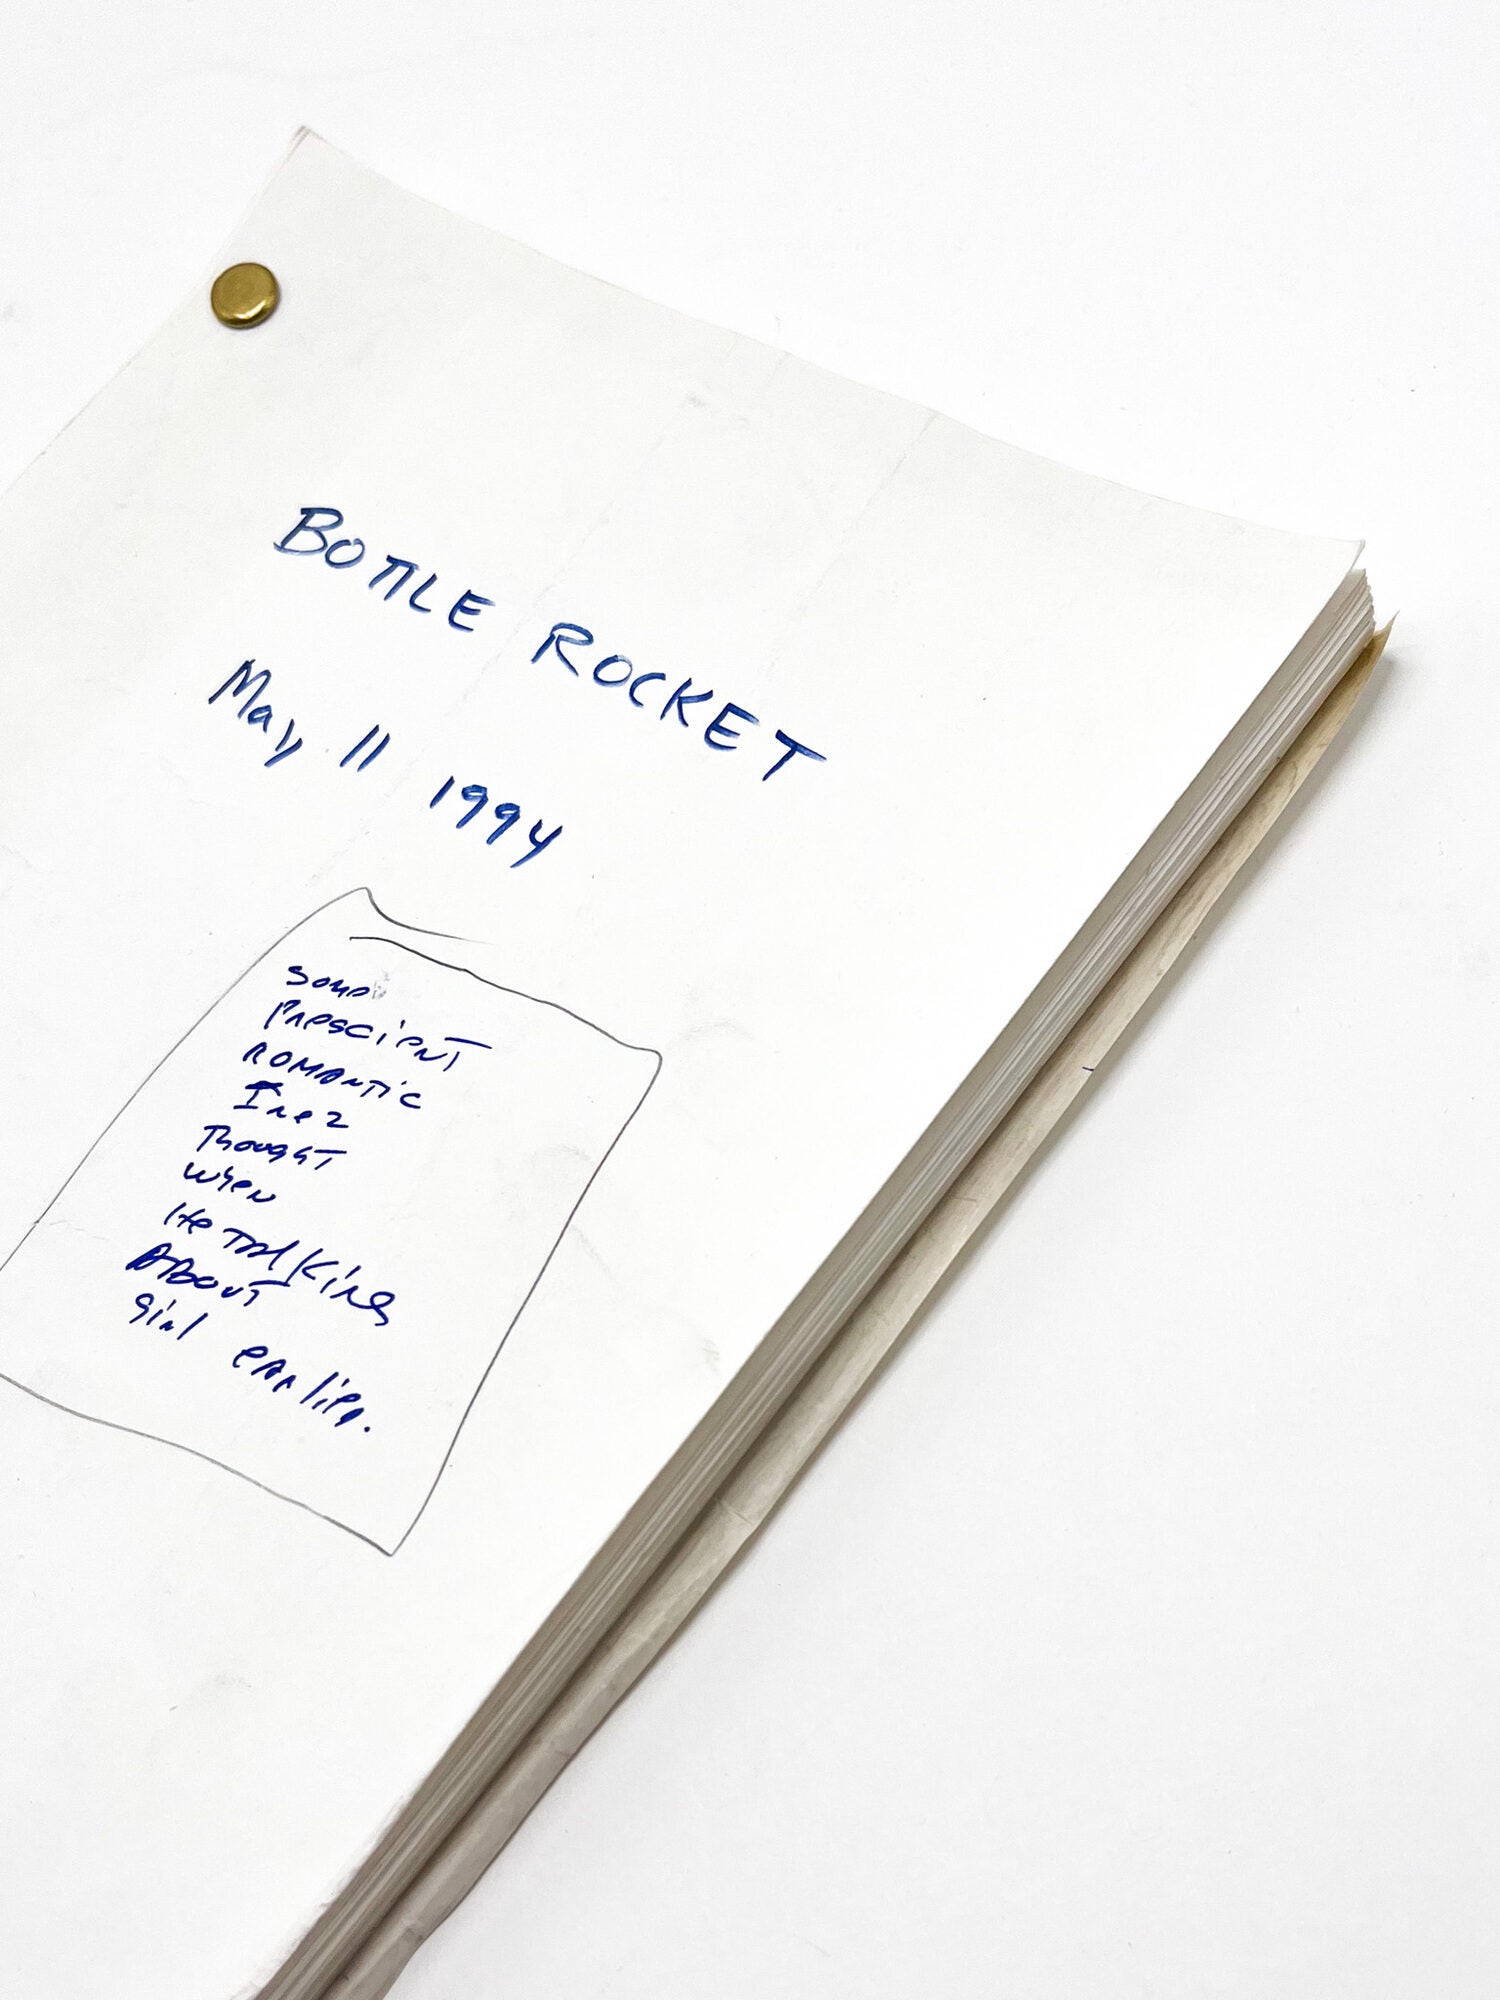 BOTTLE ROCKET
May 11 1994
some
prescient
ROMANTIC
Inez
Thought
when
He Talking
ABOUT
girl earlier.